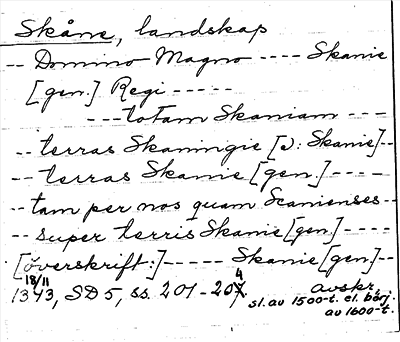 Skåne, landskap
-- Domino Magno ---- Skanie
[gen.] Regi -----
---totam Skaniam ---
-- terras Skaningie [ɔ: Skanie]--
-- terras Skanie [gen.]----
-- tam per nos quam Scanienses --
-- super terris Skanie [gen.] ----
[överskrift:]----- Skanie [gen.]--
18/11 1343, SD 5, ss. 201-204 avskr.
sl. av 1500-t. el. börj.
av 1600-t.